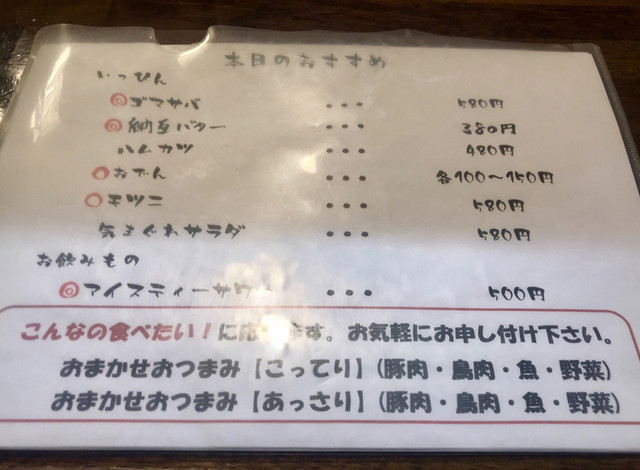 本日のおすすめ
いっぴん
◎ゴマサバ ・・・ 580円
◎納豆バター ・・・ 380円
ハムカツ ・・・ 480円
○おでん ・・・ 各100〜150円
○モツニ ・・・ 580円
気まぐれサラダ ・・・ 580円
お飲みもの
◎アイスティーサワー ・・・ 500円
こんなの食べたい！に応えます。お気軽にお申し付け下さい。
おまかせおつまみ【こってり】(豚肉・鳥肉・魚・野菜)
おまかせおつまみ【あっさり】(豚肉・鳥肉・魚・野菜)